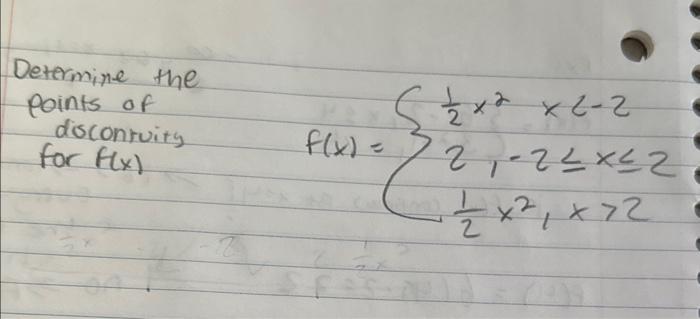 Determine the
points of
disconruity
for f(x)
f(x) = { 1/2 x² x < -2
2, -2 ≤ x ≤ 2
1/2 x², x > 2